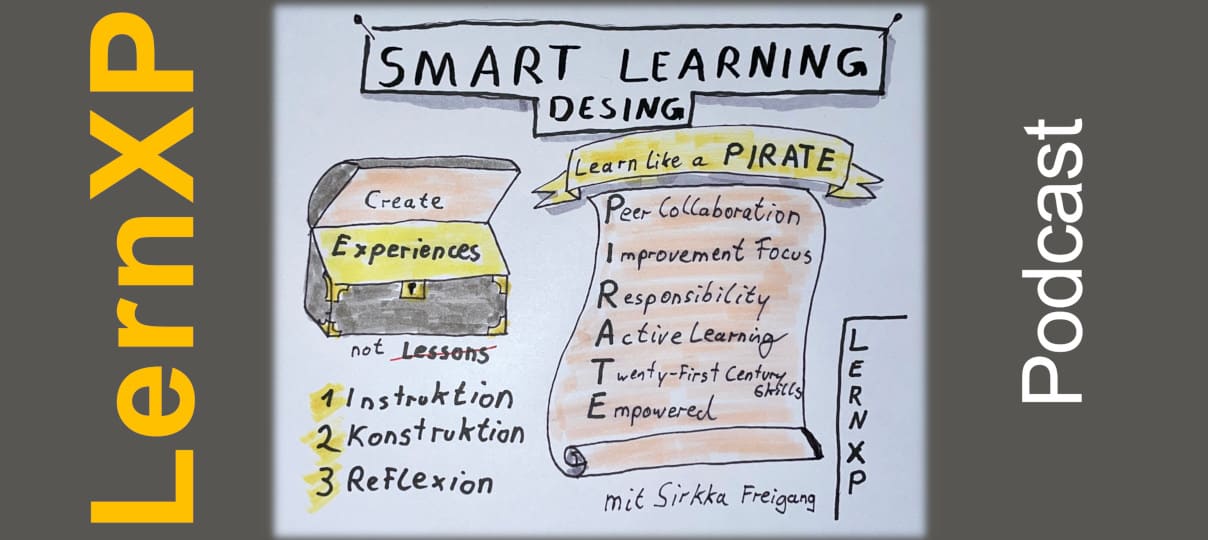 LernXP
SMART LEARNING
DESING
Create
Experiences
not Lessons
1 Instruktion
2 Konstruktion
3 Reflexion
Learn like a PIRATE
Peer Collaboration
Improvement Focus
Responsibility
Active Learning
Twenty-First Century
Skills
Empowered
mit Sirkka Freigang
LERNXP
Podcast